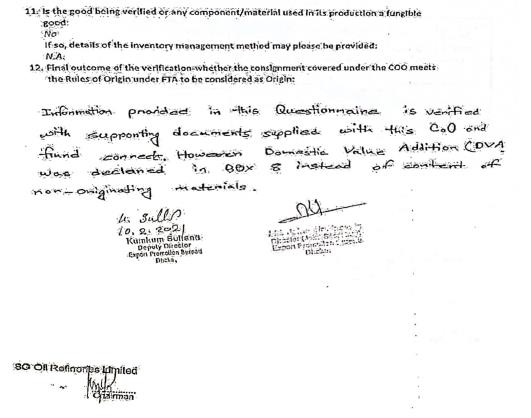 11. Is the good being verified or any component/material used in its production a fungible
good:
No
If so, details of the inventory management method may please be provided:
N.A.
12. Final outcome of the verification-whether the consignment covered under the COO meets
the Rules of Origin under FTA to be considered as Origin:
Information provided in this Questionnaire is verified
with supporting documents supplied with this CoO and
found correct. However Domestic Value Addition (DVA)
was declared in Box 8 instead of content of
non-originating materials.
K. Sultana
10.2.2021
Kumkum Sultana
Deputy Director
Export Promotion Bureau
Dhaka.
Export Promotion
Dhaka.
SG Oil Refineries Limited
Chairman